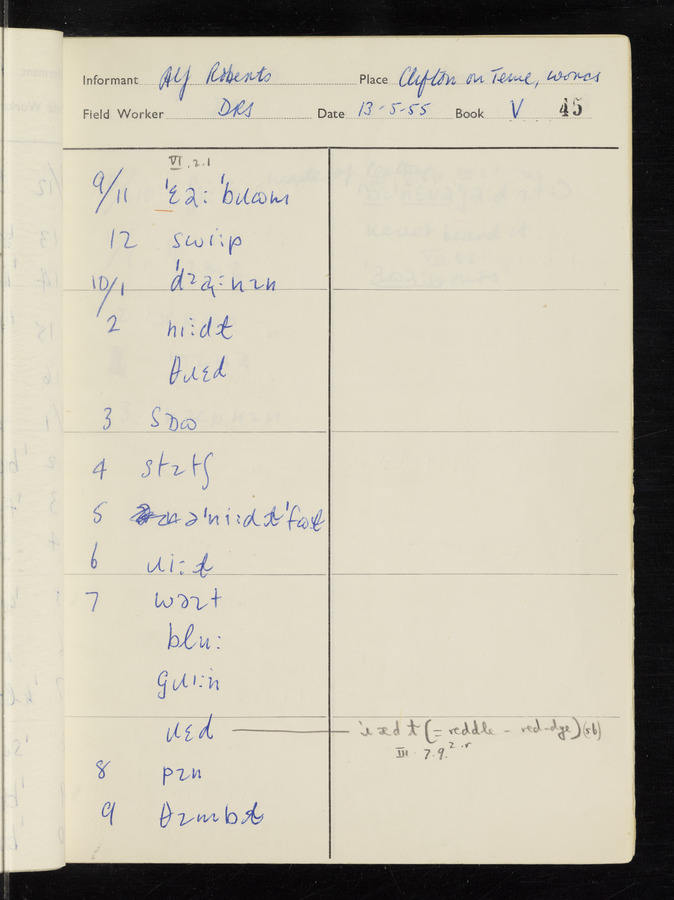 Informant Alf Roberts Place Clifton on Teme, Worcs
Field Worker DRS Date 13-5-55 Book V 45
VI.2.1
9/11 'ɛə: 'bɹɷm
12 swi:p
10/1
2 ni:dɫ
θɹɛd
3 sɒɷ
4 stɩtʃ
5 ə'ni:dɫ'fɷɫ
6 ɹi:ɫ
7 wəɩt
blu:
gɹi:n
ɹɛd — 'ɹædɫ (= reddle - red-dye) (sb)
III.7.9.
8 pɩn
9 θɩmbɫ